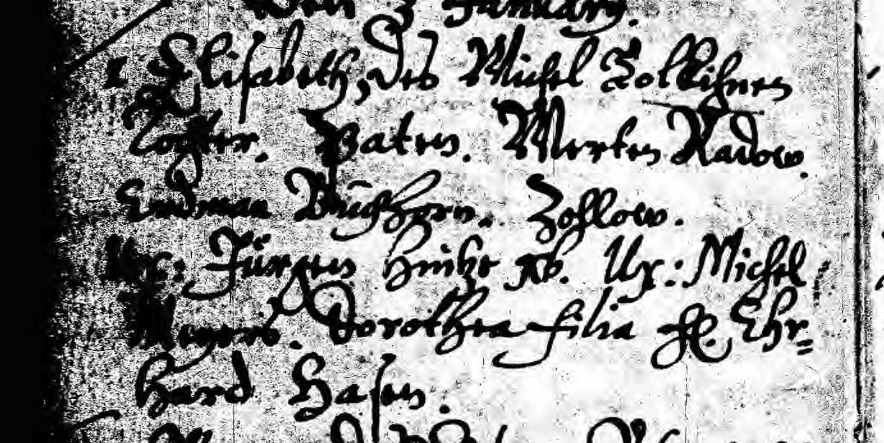 Den 3 January.
1 Elisabeth, des Michel
Tochter. Paten. Merten Radow.
Erdman Buchhorn. Zohlow.
Ux: Jürgen Hintze Ux: Michel
Meyers. Dorothea filia H. Ehr=
hard Hasen.